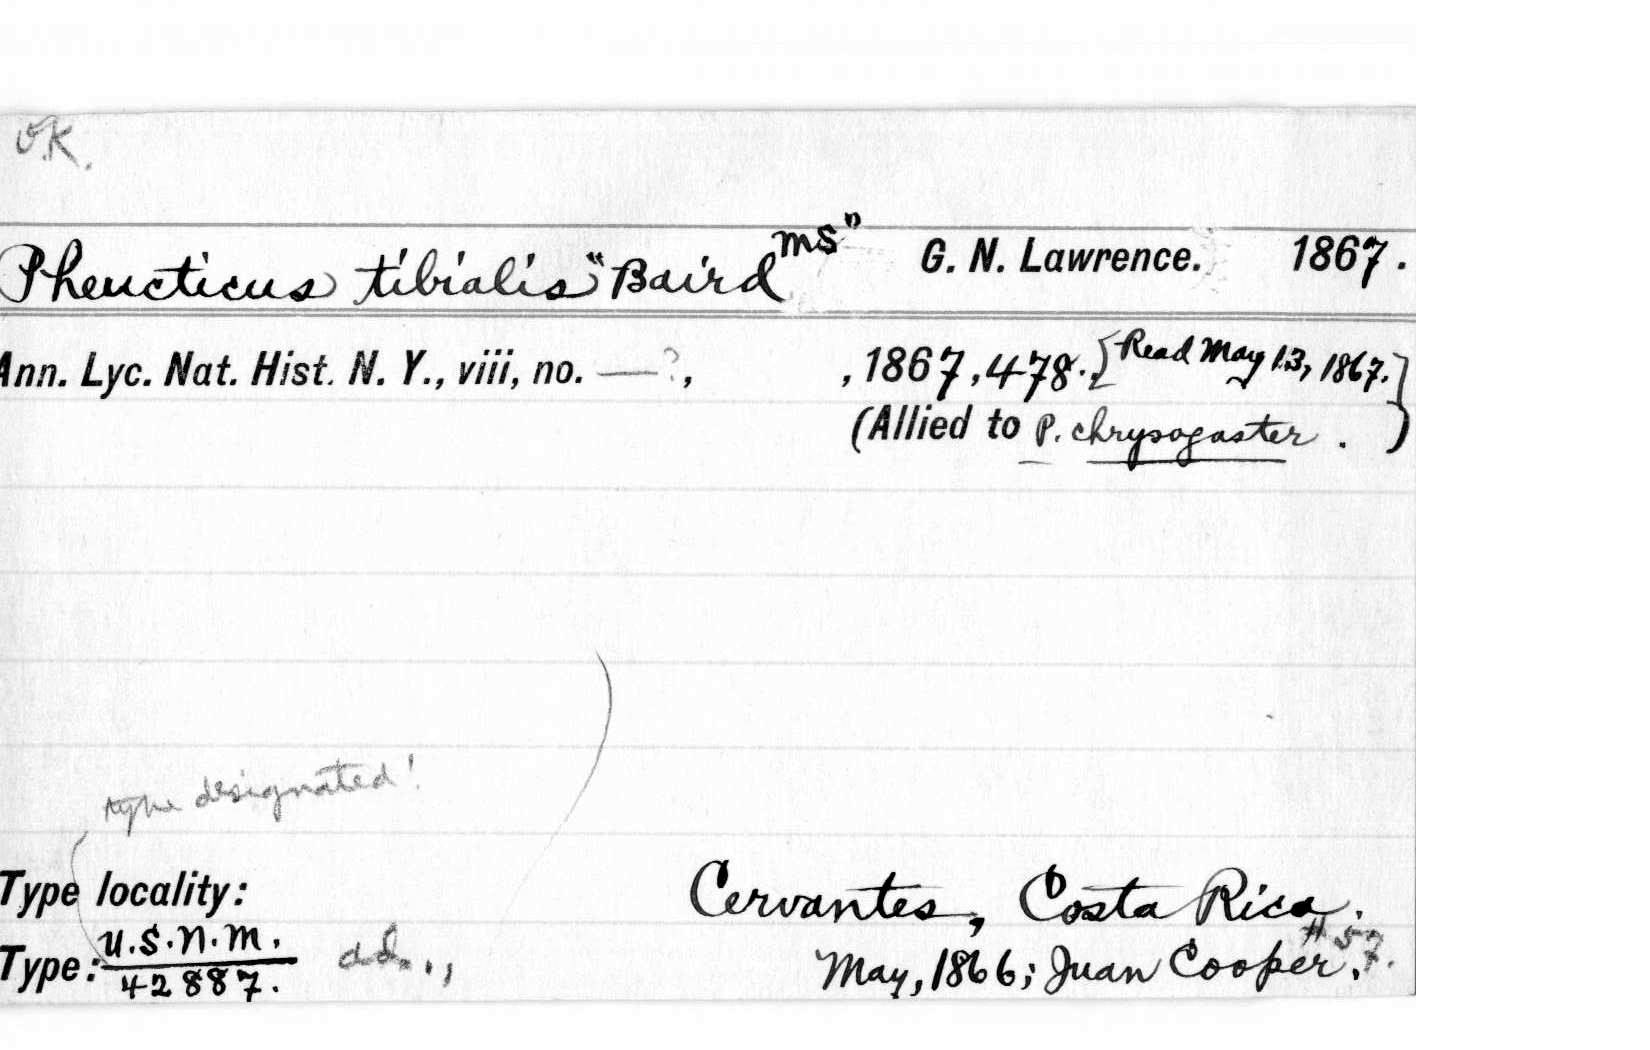 O.K.
Pheucticus tibialis "Baird ms" G. N. Lawrence. 1867.
Ann. Lyc. Nat. Hist. N. Y., viii, no. —?, , 1867, 478. [Read May 13, 1867.]
(Allied to P. chrysogaster. )
type designated!
Type locality: Cervantes, Costa Rica.
Type: U.S.N.M. 42887. ad., May, 1866; Juan Cooper. #57.